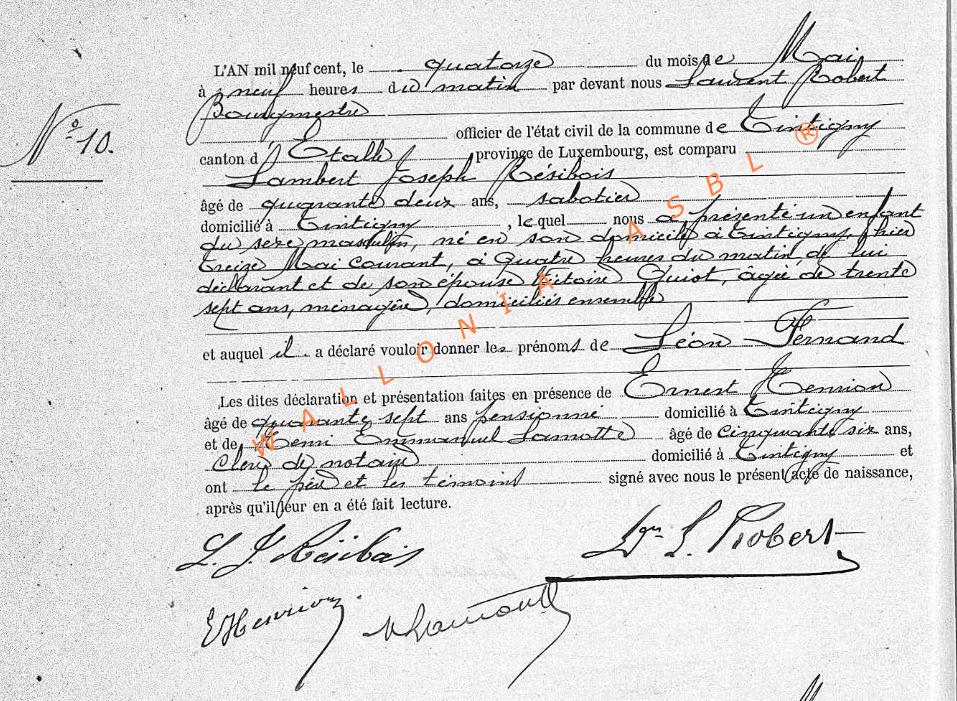 L'AN mil neuf cent, le quatorze du mois de Mai
à neuf heures du matin par devant nous Laurent Robert
Bourgmestre
officier de l'état civil de la commune de Tintigny
N° 10.
canton d'Etalle province de Luxembourg, est comparu
Lambert Joseph Résibois
âgé de quarante deux ans, sabotier
domicilié à Tintigny, lequel nous a présenté un enfant
du sexe masculin, né en son domicile à Tintigny, hier
treize Mai courant, à quatre heures du matin, de lui
déclarant et de son épouse Victoire Quiot, âgée de trente
sept ans, ménagère, domiciliés ensemble
et auquel il a déclaré vouloir donner les prénoms de Léon Fernand
Les dites déclaration et présentation faites en présence de Ernest Henrion
âgé de quarante sept ans pensionné domicilié à Tintigny
et de Henri Emmanuel Lamotte âgé de cinquante six ans,
clerc de notaire domicilié à Tintigny et
ont le père et les témoins signé avec nous le présent acte de naissance,
après qu'il leur en a été fait lecture.
L. J. Résibois
L. Robert
E Henrion
WALLONIA ASBL ®